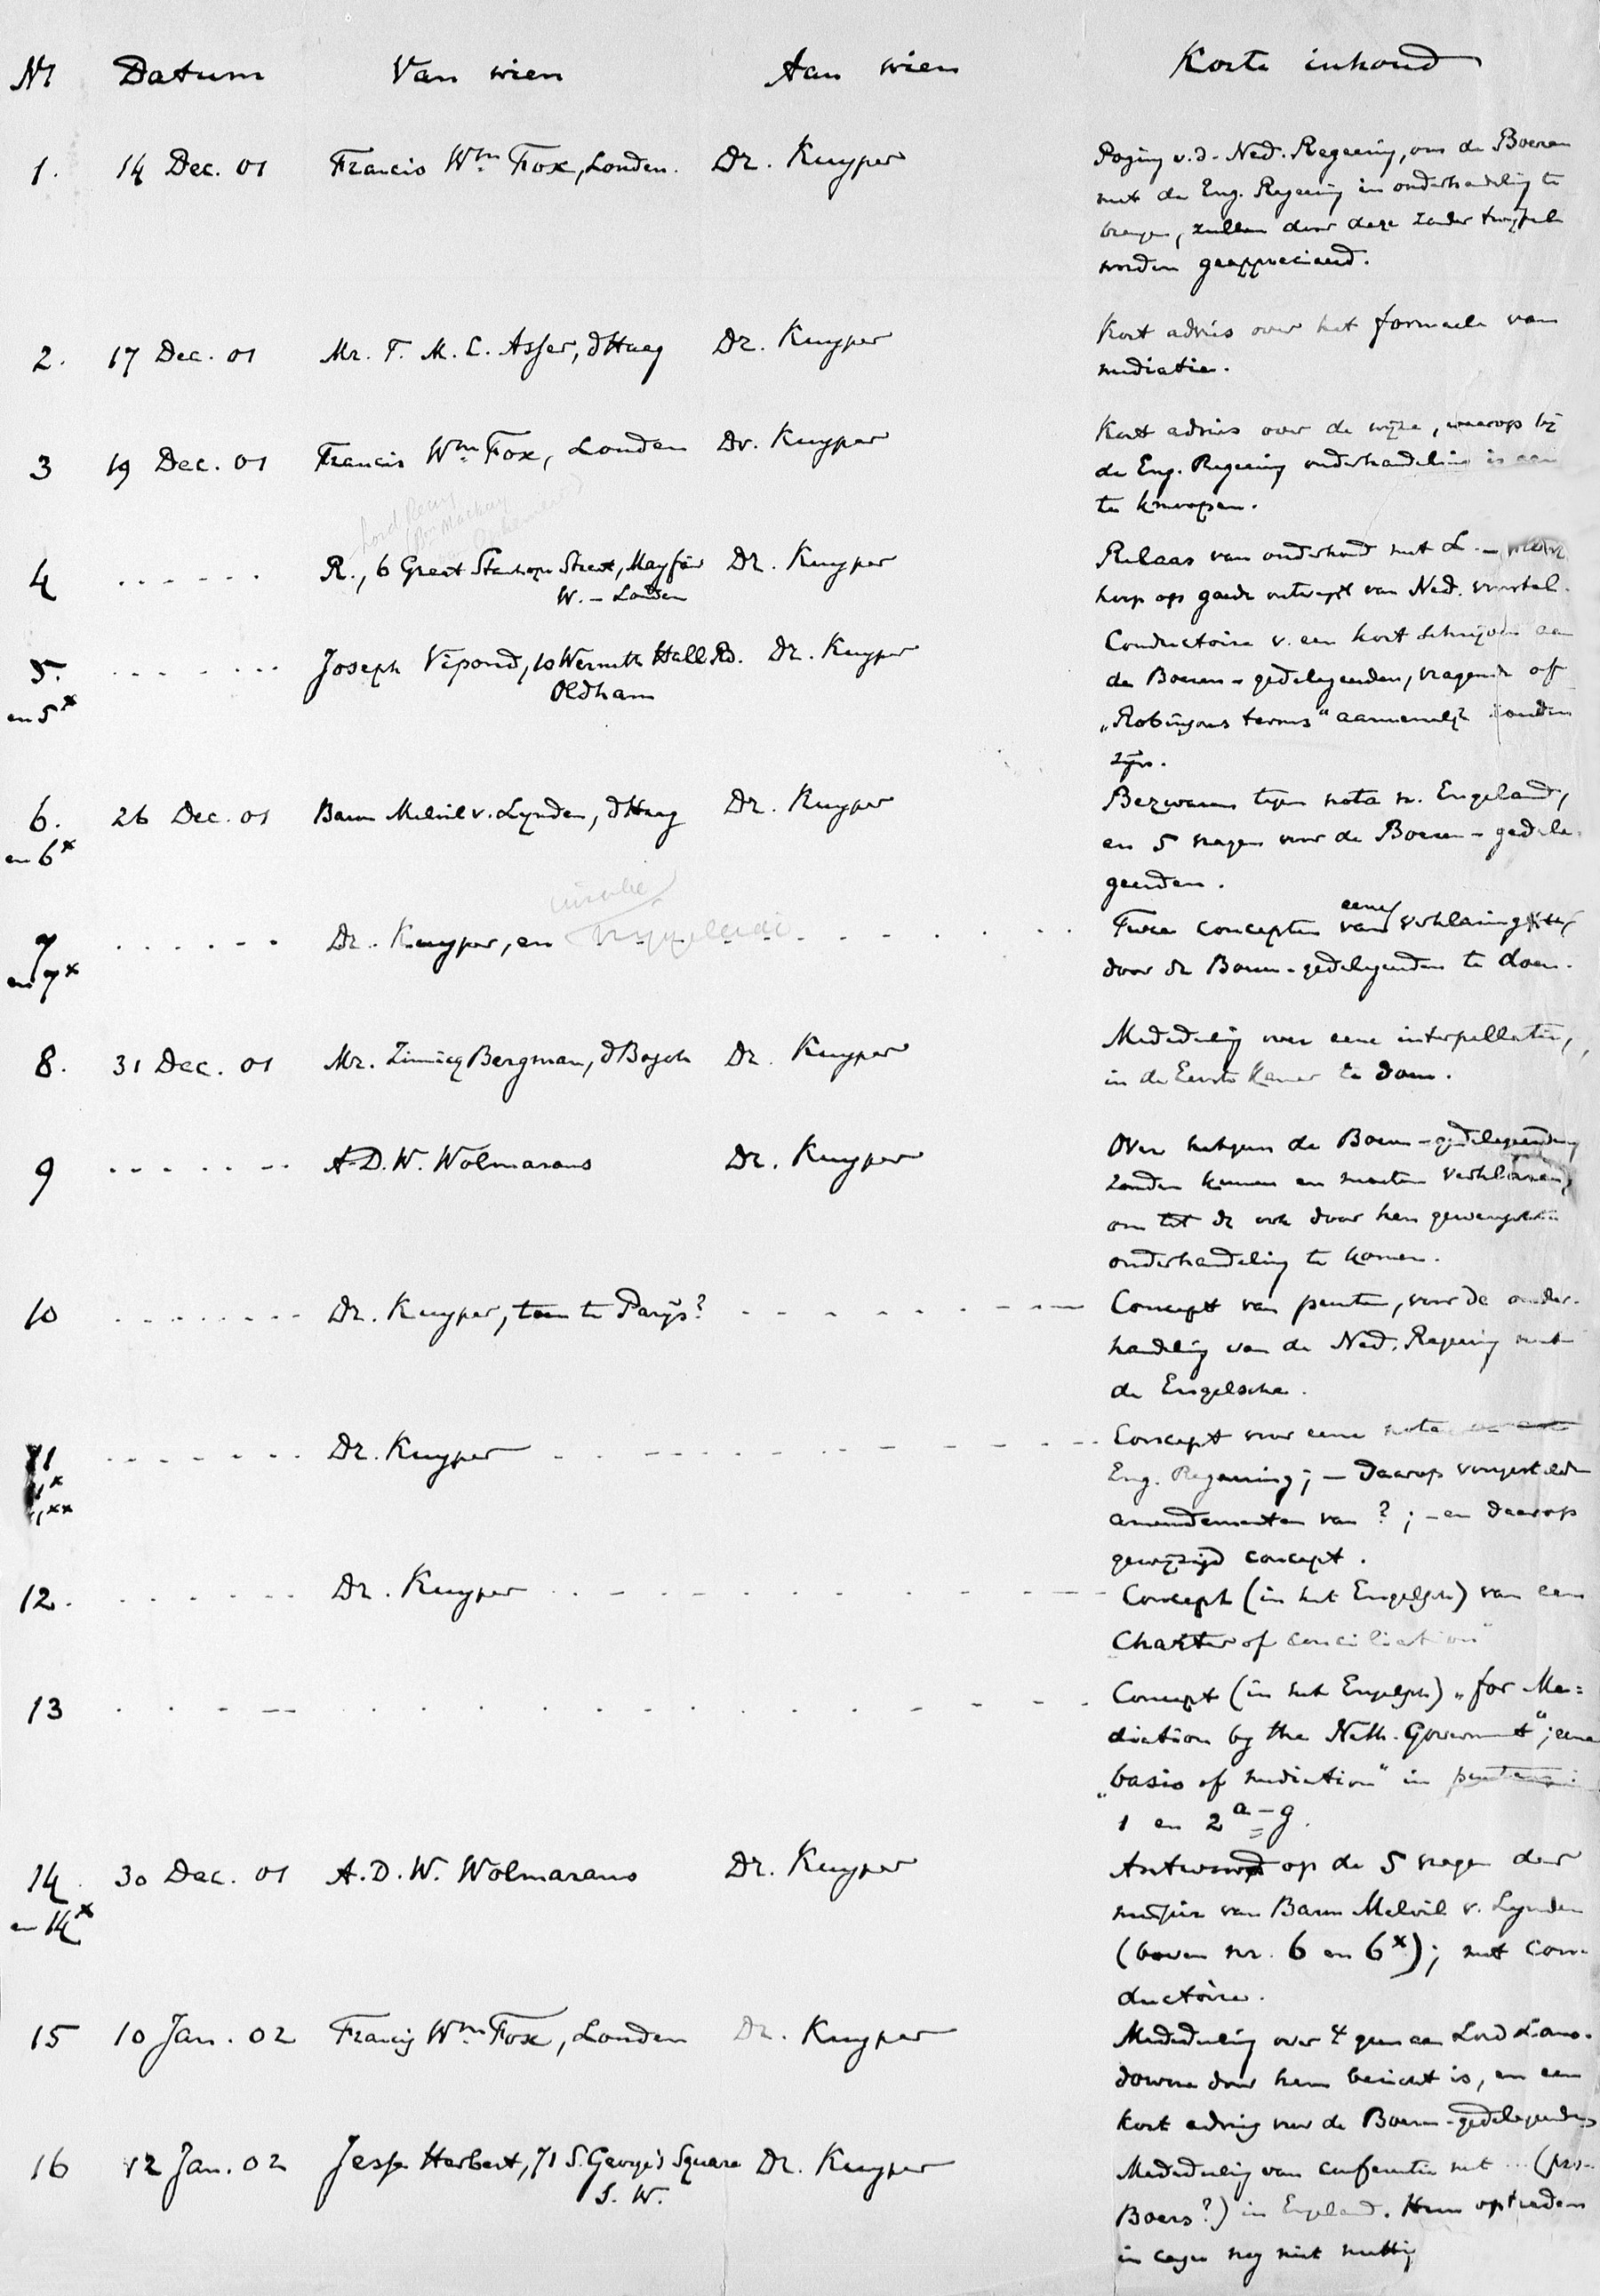 Nr Datum Van wien Aan wien Korte inhoud
1. 14 Dec. 01 Francis Wm Fox, Londen. Dr. Kuyper Poging v.d. Ned. Regeering, om de Boeren
met de Eng. Regeering in onderhandeling te
brengen, zullen door deze zonder twijfel
worden geapprecieerd.
2. 17 Dec. 01 Mr. T. M. C. Asser, d Haag Dr. Kuyper Kort advies over het formeele van
mediatie.
3 19 Dec. 01 Francis Wm Fox, Londen Dr. Kuyper Kort advies over de wijze, waarop bij
de Eng. Regeering onderhandeling is aan
te knoopen.
Lord Reay
(Bn Mackay
4 . . . . . . R., 6 Great Stanhope Street, Mayfair Dr. Kuyper Relaas van onderhoud met L. –
W. – Londen hoop op goede ontvangst van Ned. voorstel.
5. . . . . . . . Joseph Vipond, 10 Werneth Hall Rd. Dr. Kuyper Conductoire v. een kort schrijven aan
en 5x Oldham de Boeren-gedelegeerden, vragende of
„Robinsons terms“ aannemelijk zouden
zijn.
6. 26 Dec. 01 Baron Melvil v. Lynden, d Haag Dr. Kuyper Bezwaren tegen nota n. Engeland,
en 6x en 5 vragen voor de Boeren-gedele-
geerden.
7 . . . . . . Dr. Kuyper, en . . . . . . Twee concepten van eene verklaring
en 7x door de Boeren-gedelegeerden te doen.
8. 31 Dec. 01 Mr. Zinnicq Bergman, d Bosch Dr. Kuyper Mededeeling over eene interpellatie,
in de Eerste Kamer te doen.
9 . . . . . . . A. D. W. Wolmarans Dr. Kuyper Over hetgeen de Boeren-gedelegeerden
zouden kunnen en moeten verklaren,
om tot de ook door hen gewenschte
onderhandeling te komen.
10 . . . . . . . . Dr. Kuyper, toen te Parijs? . . . . . . . . Concept van punten, voor de onder-
handeling van de Ned. Regeering met
de Engelsche.
11 . . . . . . . Dr. Kuyper . . . . . . . . Concept voor eene nota
11x Eng. Regeering; – daarop voorgestelde
11xx amendementen van ?; – en daarop
gewijzigd concept.
12. . . . . . . Dr. Kuyper . . . . . . . . Concept (in het Engelsch) van een
„Charter of conciliation“
13 . . . . . . . . . . . . . . . . Concept (in het Engelsch) „for Me=
diation by the Neth. Government“; eene
„basis of mediation“ in punten:
1 en 2 a–g.
14. 30 Dec. 01 A. D. W. Wolmarans Dr. Kuyper Antwoord op de 5 vragen der
en 14x missive van Baron Melvil v. Lynden
(boven nr. 6 en 6x); met con-
ductoire.
15 10 Jan. 02 Francis Wm Fox, Londen Dr. Kuyper Mededeeling over 't geen aan Lord Lans-
downe door hem bericht is, en een
kort advies voor de Boeren-gedelegeerden
16 12 Jan. 02 Jesse Herbert, 71 S. George's Square Dr. Kuyper Mededeeling van conferentie met ... (pro-
S. W. Boers?) in Engeland. Hun optreden
in casu nog niet nuttig